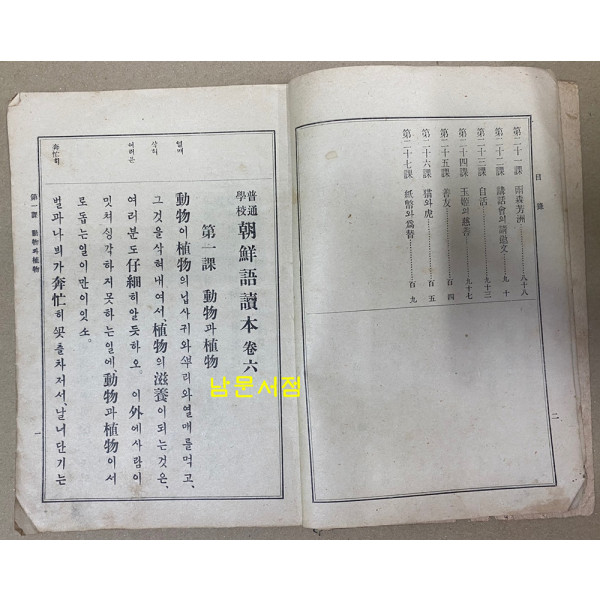 目錄
第二十一課 雨森芳洲 八十八
第二十二課 講話會의請邀文 九十
第二十三課 自活 九十三
第二十四課 玉姬의慈善 九十七
第二十五課 善友 百四
第二十六課 猫와虎 百五
第二十七課 紙幣와爲替 百九
二
普通
學校
朝鮮語讀本 卷六
第一課 動物과植物
動物이植物의닙사귀와ᄲᅮ리와열매를먹고,
그것을삭혀내여서,植物의滋養이되는것은,
여러분도仔細히알듯하오。이外에사람이
밋처싱각하지못하는일에,動物과植物이서
로돕는일이만이잇소。
벌과나븨가奔忙히ᄭᅩᆺ츨차저서,날너단기는
열매
삭혀
여러분
奔忙히
第一課 動物과植物
一
남문서점